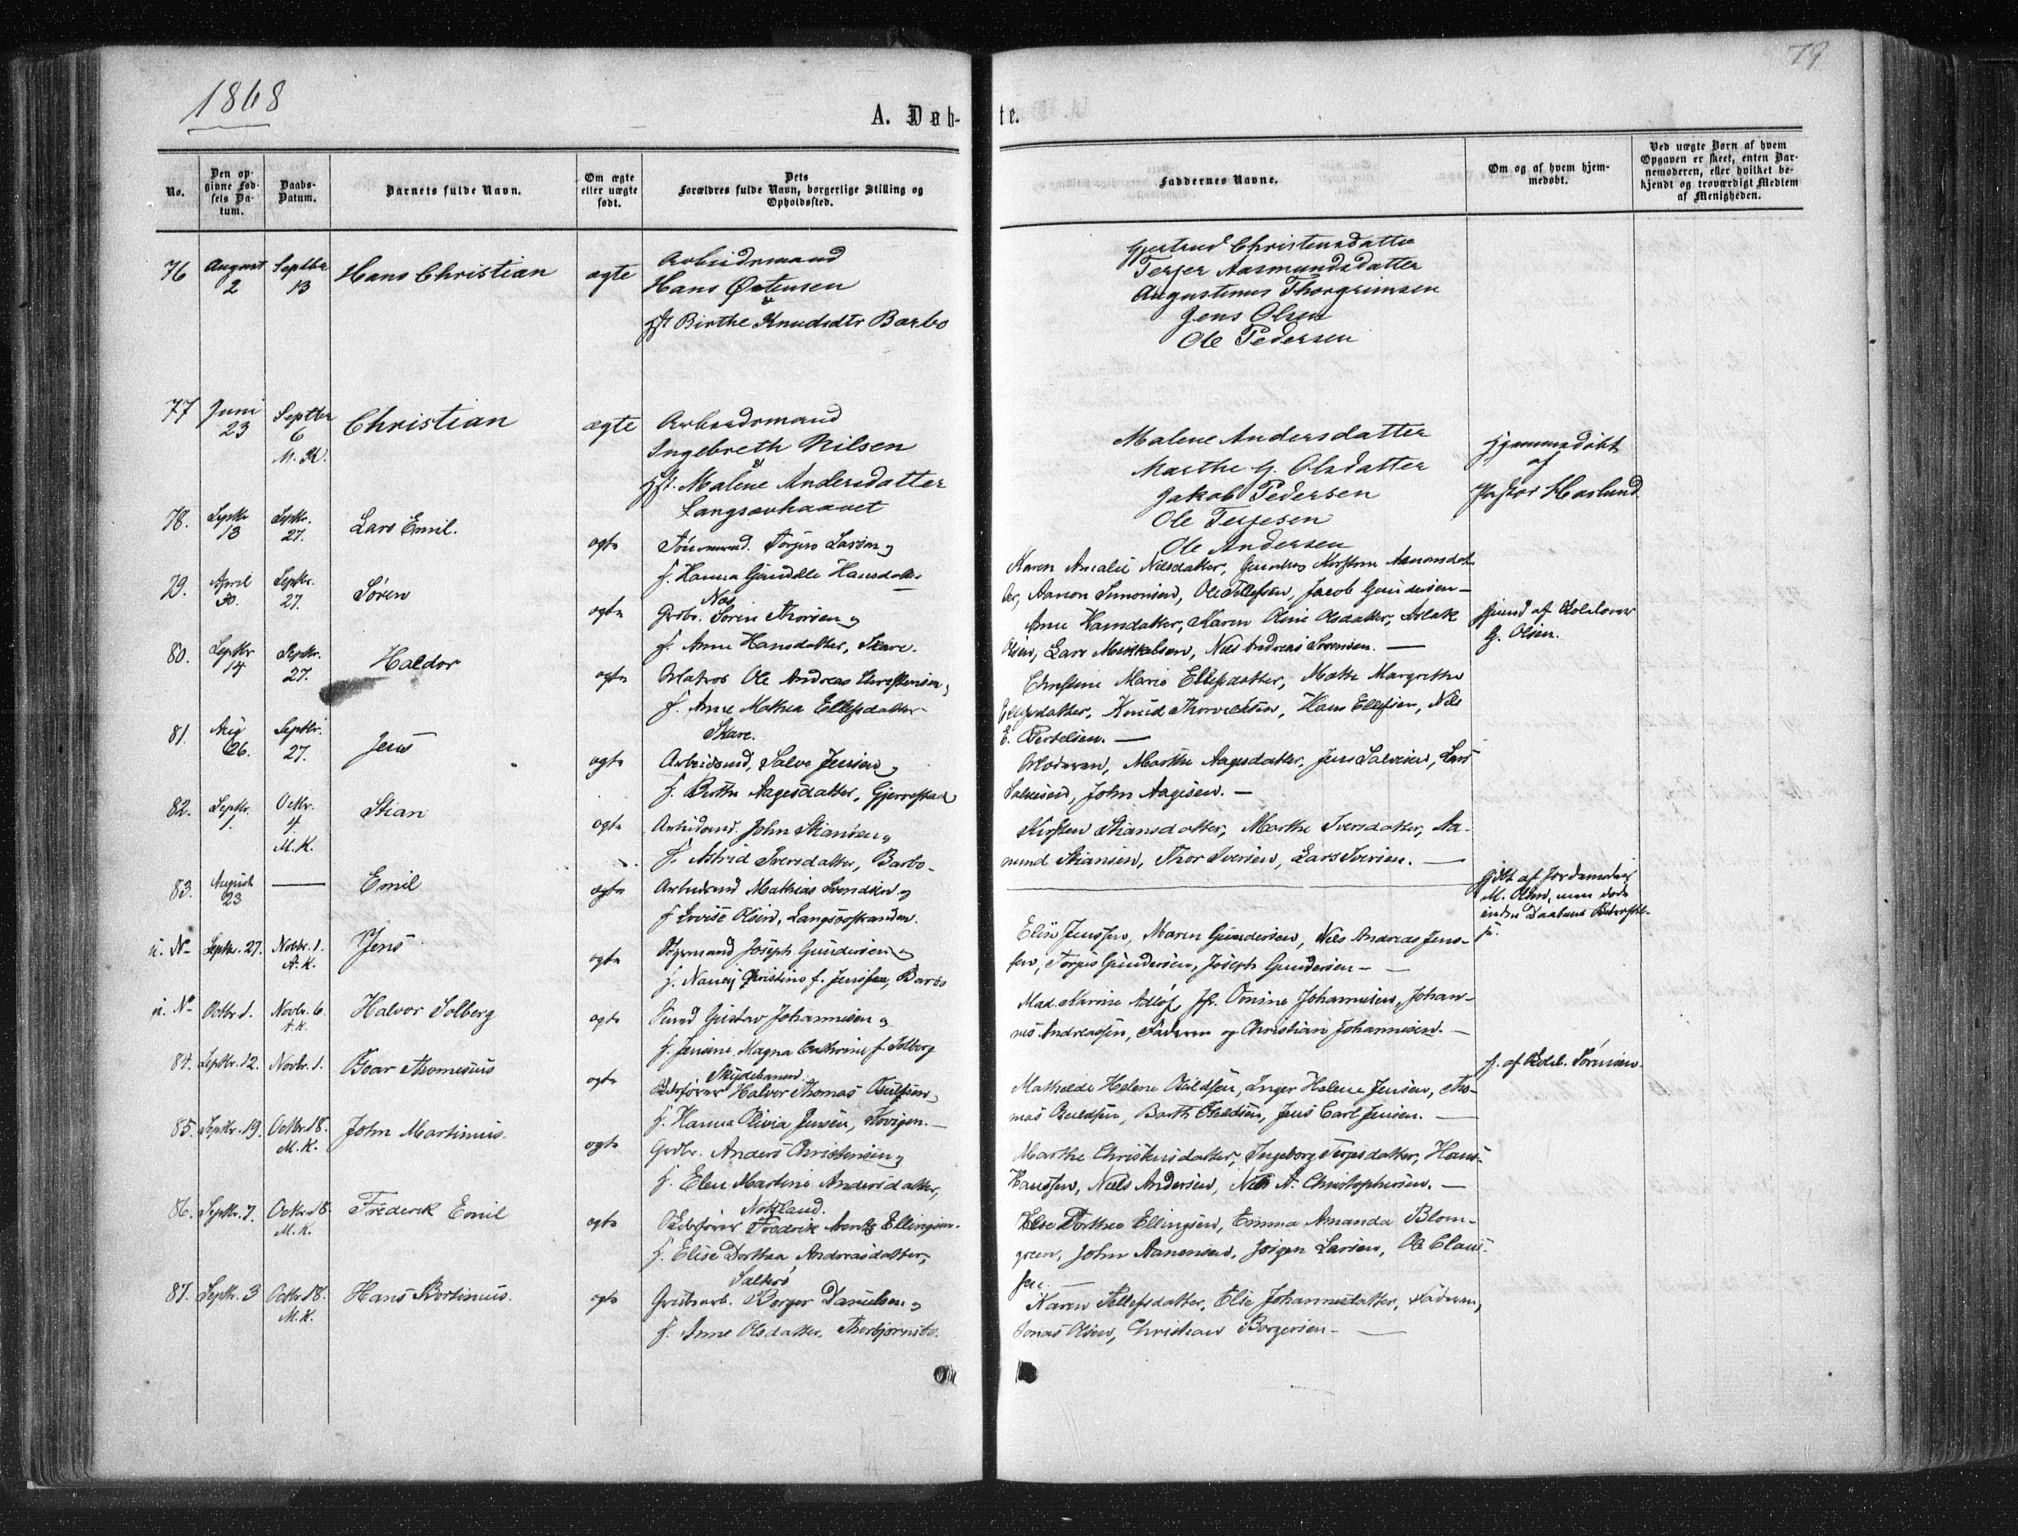 1868
79
A. Døb-
te.
No.
Den op-
givne Fød-
sels Da-
tum.
Daabs-
Datum.
Barnets fulde Navn.
Om ægte
eller uægte
født.
Dets
Forældres fulde Navn, borgerlige Stilling og
Opholdssted.
Faddernes Navne.
Om og af hvem hjem-
medøbt.
Ved uægte Børn af hvem
Opgaven er skeet, enten Bar-
nemoderen, eller hvilket be-
kjendt og troværdigt Medlem
af Menigheden.
76
August
2
Septbr
13
Hans Christian
ægte
Arbeidsmand
Hans Østensen
&
Hst Birthe Knudsdtr Barbo
Gjertrud Christensdatter
Terjer Aasmundsdatter
Augustinus Thorgrimsen
Jens Olsen
Ole Pedersen
77
Juni
23
Septber
6
M. K.
Christian
ægte
Arbeidsmand
Ingebreth Nilsen
&
Hst. Malene Andersdatter
Langsævhaavet
Malene Andersdatter
Marthe G. Olsdatter
Jakob Pedersen
Ole Terjesen
Ole Andersen
hjemmedøbt
af
Pastor Haslund
78.
Septbr
13
Septbr.
27.
Lars Emil.
ægte
Tømmermd. Torjus Larsen og
H. Hanna Gundelle Hansdatter
Næs
Karen Amalie Nilsdatter, Kirstine Aanonsdat-
ter, Aanon Simonsen, Ole Tellefsen, Jacob Gundersen —
79.
April
30.
Septbr.
27.
Søren
ægte
Grdbr. Søren Thorsen og
H. Anne Hansdatter, Skare.
Anne Hansdatter, Karen Oline Olsdatter, Aslak
Olsen, Lars Mikkelsen, Niels Andreas Sørensen. —
hjemd af Kolelærer
G. Olsen.
80.
Septbr
14
Septbr.
27.
Haldor
ægte
Matros Ole Andreas Christensen,
H. Anne Mathea Ellefsdatter
Skare.
Christine Marie Ellefsdatter, Mathe Margrethe
Ellefsdatter, Knud Thorvaldsen, Hans Ellefsen, Nils
E. Bertelsen. —
81.
Aug
26.
Septbr.
27.
Jens
ægte
Arbeidsmd, Salve Jensen og
H. Birthe Aagesdatter, Gjerrestad
Moderen, Marthe Aagesdatter, Jens Salvesen, Lars
Salvesen, John Aagesen. —
82.
Septbr.
1.
Octbr.
4
M.K.
Stian
ægte
Arbeidsmd. John Stiansen og
H. Astrid Iversdatter, Barbo.
Kirsten Stiansdatter, Marthe Iversdatter, Aa-
mund Stiansen, Thor Iversen, Lars Iversen. —
83.
August
23
—
Emil
ægte
Arbeidsmd Mathias Svendsen og
H Lovise Olsen, Langsæstranden.
hjdbt af Jordemoder
M. Olsen, men døde
inden Daabens Bekræftel-
se.
u. No
Septbr. 27.
Novbr. 1.
A.K.
Jens
ægte
Styrmand Joseph Gundersen og
H. Nancy Christine f. Jenssen, Barbo
Elise Jenssen, Maren Gundersen, Nils Andreas Jens-
sen, Torjus Gundersen, Joseph Gundersen —
u. No
Octbr 1.
Novbr. 6.
A.K.
Halvor Solberg
ægte
Gustav Johannesen og
H. Jensine Magna Cathrine f. Solberg
Skydebanen
Mad. Karine Adløf, Jfr. Tonine Johannesen, Johan-
nes Andreassen, Faderen og Christian Johannesen. —
84.
Septbr. 12.
Novbr. 1.
Boar Thomesius
ægte
Skibsfører Halvor Thomas Bulfsen,
H. Hanna Olivia Jensen, Kovigen. —
Mathilde Helene Buldsen, Inger Helene Jensen, Tho-
mas Buldsen, Barth Buldsen, Jens Carl Jensen. —
hj. af Kolel. Sørensen.
85.
Septbr. 19.
Octbr. 18.
M.K.
John Martinius.
ægte
Grdbr. Anders Christensen og
H. Elen Martine Andersdatter,
Natland.
Marthe Christensdatter, Ingeborg Terjesdatter, Hans
Hanssen, Niels Andersen, Niels A. Christophersen. —
86.
Septbr. 7.
Octbr. 18.
M.K.
Frederik Emil
ægte
Skibsfører Fredrik Arntz Ellingsen.
H. Elise Dorthea Andreasdatter,
Saltrø
Else Dorthea Ellingsen, Emma Amanda Blom-
green, John Aanensen, Jørgen Larsen, Ole Claus-
sen. —
87.
Septbr. 3
Octbr. 18.
M.K.
Hans Bertinius.
ægte
Gruibearb. Borger Danielsen og
H. Anne Olsdatter, Thorbjørnsbo.
Karen Tellefsdatter, Else Johannesdatter, Faderen,
Jonas Olsen, Christian Borgersen —